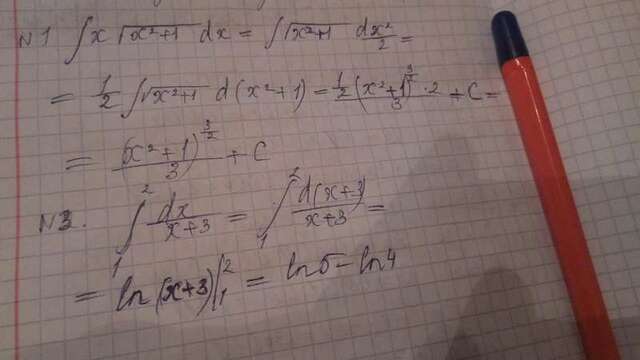 N1 ∫ x √(x²+1) dx = ∫ √(x²+1) dx²/2 =
= 1/2 ∫ √(x²+1) d(x²+1) = 1/2 (x²+1)^(3/2)/3 · 2 + C =
= (x²+1)^(3/2)/3 + C
N3. ∫₁² dx/(x+3) = ∫₁² d(x+3)/(x+3) =
= ln(x+3)|₁² = ln5 - ln4